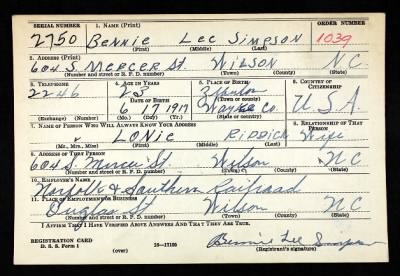 SERIAL NUMBER 1. NAME (Print) ORDER NUMBER
2750 BENNIE LEE SIMPSON 1039
(First) (Middle) (Last)
2. ADDRESS (Print)
604 S. MERCER St. WILSON N.C.
(Number and street or R. F. D. number) (Town) (County) (State)
3. TELEPHONE 4. AGE IN YEARS 5. PLACE OF BIRTH 6. COUNTRY OF CITIZENSHIP
2246 23
DATE OF BIRTH (Town or county)
6 17 1917 Wayne Co. U.S.A.
(Exchange) (Number) (Mo.) (Day) (Yr.) (State or country)
7. NAME OF PERSON WHO WILL ALWAYS KNOW YOUR ADDRESS 8. RELATIONSHIP OF THAT PERSON
LONIE RIDDICK Wife
(Mr., Mrs., Miss) (First) (Middle) (Last)
9. ADDRESS OF THAT PERSON
604 S. Mercer St. Wilson NC
(Number and street or R. F. D. number) (Town) (County) (State)
10. EMPLOYER'S NAME
Norfolk & Southern Railroad
11. PLACE OF EMPLOYMENT OR BUSINESS
Douglas St Wilson NC
(Number and street or R. F. D. number) (Town) (County) (State)
I AFFIRM THAT I HAVE VERIFIED ABOVE ANSWERS AND THAT THEY ARE TRUE.
REGISTRATION CARD
D. S. S. Form 1 (over) 16—17105 Bennie Lee Simpson
(Registrant's signature)